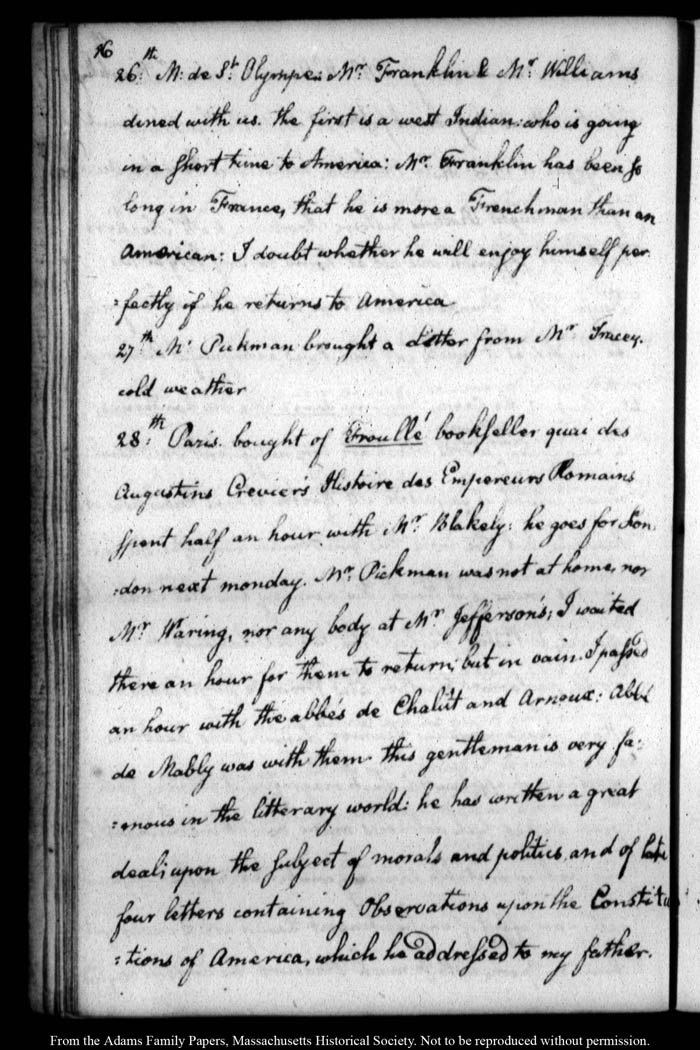 16
26.th M: de St. Olympe: Mr. Franklin & Mr. Williams
dined with us. the first is a west Indian: who is going
in a short time to America: Mr. Franklin has been so
long in France, that he is more a Frenchman than an
American: I doubt whether he will enjoy himself per-
=fectly if he returns to America
27.th Mr Pickman brought a letter from Mr. Tracey.
cold weather
28.th Paris. bought of Froullé bookseller quai des
Augustins Crevier's Histoire des Empereurs Romains
spent half an hour with Mr. Blakely: he goes for Lon-
:don next monday. Mr. Pickman was not at home, nor
Mr Waring, nor any body at Mr Jefferson's; I waited
there an hour for them to return, but in vain. I passed
an hour with the abbés de Chalut and Arnoux: Abbé
de Mably was with them this gentleman is very fa:
=mous in the litterary world: he has written a great
deal; upon the subject of morals and politics, and of late
four letters containing Observations upon the Constitu
=tions of America, which he addressed to my father.
From the Adams Family Papers, Massachusetts Historical Society. Not to be reproduced without permission.